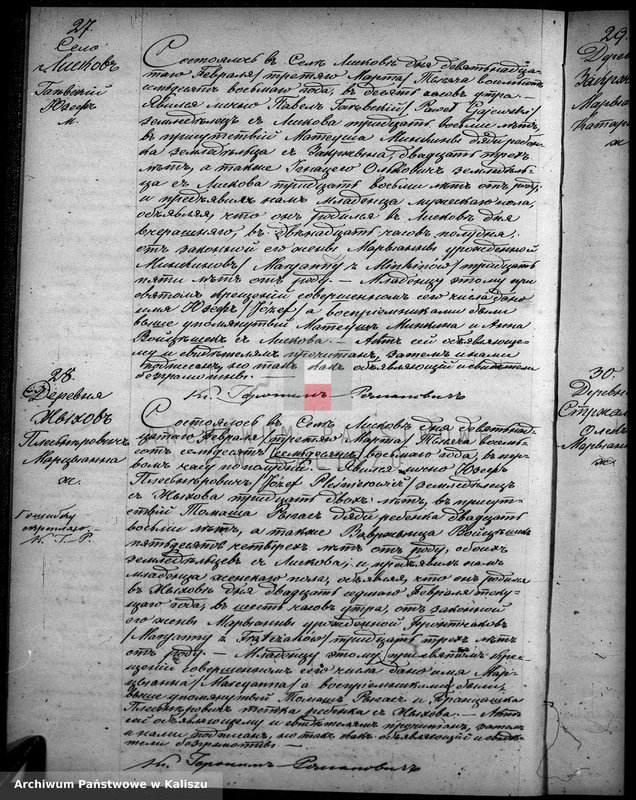 27.
Село
Лисковъ
Гаевскій
Юзефъ
м.
Состоялось въ Селѣ Лисковѣ дня девятнадца-
таго Февраля/третяго Марта/Тысяча восемьсотъ
семдесятъ восьмаго года, въ десять часовъ утра.
Явился лично Павелъ Гаевскій/Paweł Gajewski/
земледѣлецъ съ Лискова тридцать восьми лѣтъ,
въ присутствіи Матеуша Минкины дяди ребен-
ка земледѣльца съ двадцать трехъ
лѣтъ, а также Игнацего земледѣль-
ца съ Лискова тридцать восьми лѣтъ отъ роду,
и предъявилъ намъ младенца мужескаго пола,
объявляя, что онъ родился въ Лисковѣ дня
вчерашняго, въ двѣнадцать часовъ полудня,
отъ законной его жены Маріанны урожденной
Минкиновъ/Maryanny z Minkinów/тридцать
пяти лѣтъ отъ роду. — Младенцу этому при
святомъ крещеніи совершенномъ сего числа дано
имя Юзефъ/Józef/а воспріемниками были
выше упомянутый Матеушъ Минкина и Анна
Войцѣшекъ съ Лискова. — Актъ сей объявляюще-
му и свидѣтелямъ прочитанъ, затемъ нами
подписанъ, но такъ какъ объявляющій и свидѣтели
безграмотны.
Кс. Геронимъ Романовичъ
28.
Деревня
Жыховъ
Плесьнѣровичъ
Марцыанна
ж.
Состоялось въ Селѣ Лисковѣ дня девятнад-
цатаго Февраля/третяго Марта/Тысяча восемь-
сотъ семдесятъ/семдесятъ/восьмаго года, въ пер-
вомъ часу пополудни. Явился лично Юзефъ
Плесьнѣровичъ/Józef Pleśnierowicz/земледѣлецъ
съ Жыхова тридцать двохъ лѣтъ, въ присут-
ствіи Томаша дяди ребенка двадцать
восьми лѣтъ, а также Вавржынца Войцѣшекъ
пятдесятъ четырехъ лѣтъ отъ роду, обоихъ
земледѣльцевъ съ Лискова, и предъявилъ намъ
младенца женскаго пола, объявляя, что онъ родился
въ Жыховѣ дня двадцать седмого Февраля теку-
щаго года, въ шесть часовъ утра, отъ законной
его жены Маріанны урожденной
/Maryanny z /тридцать трехъ лѣтъ
отъ роду. — Младенцу этому при святомъ кре-
щеніи совершенномъ сего числа дано имя Мар-
цыанна/Marcyanna/а воспріемниками были,
выше упомянутый Томашъ и Францишка
Плесьнѣровичъ тетка ребенка съ Жыхова. — Актъ
сей объявляющему и свидѣтелямъ прочитанъ, затемъ
и нами подписанъ, но такъ какъ объявляющій и свидѣ-
тели безграмотны. —
Кс. Геронимъ Романовичъ
29.
30.
Archiwum Państwowe w Kaliszu